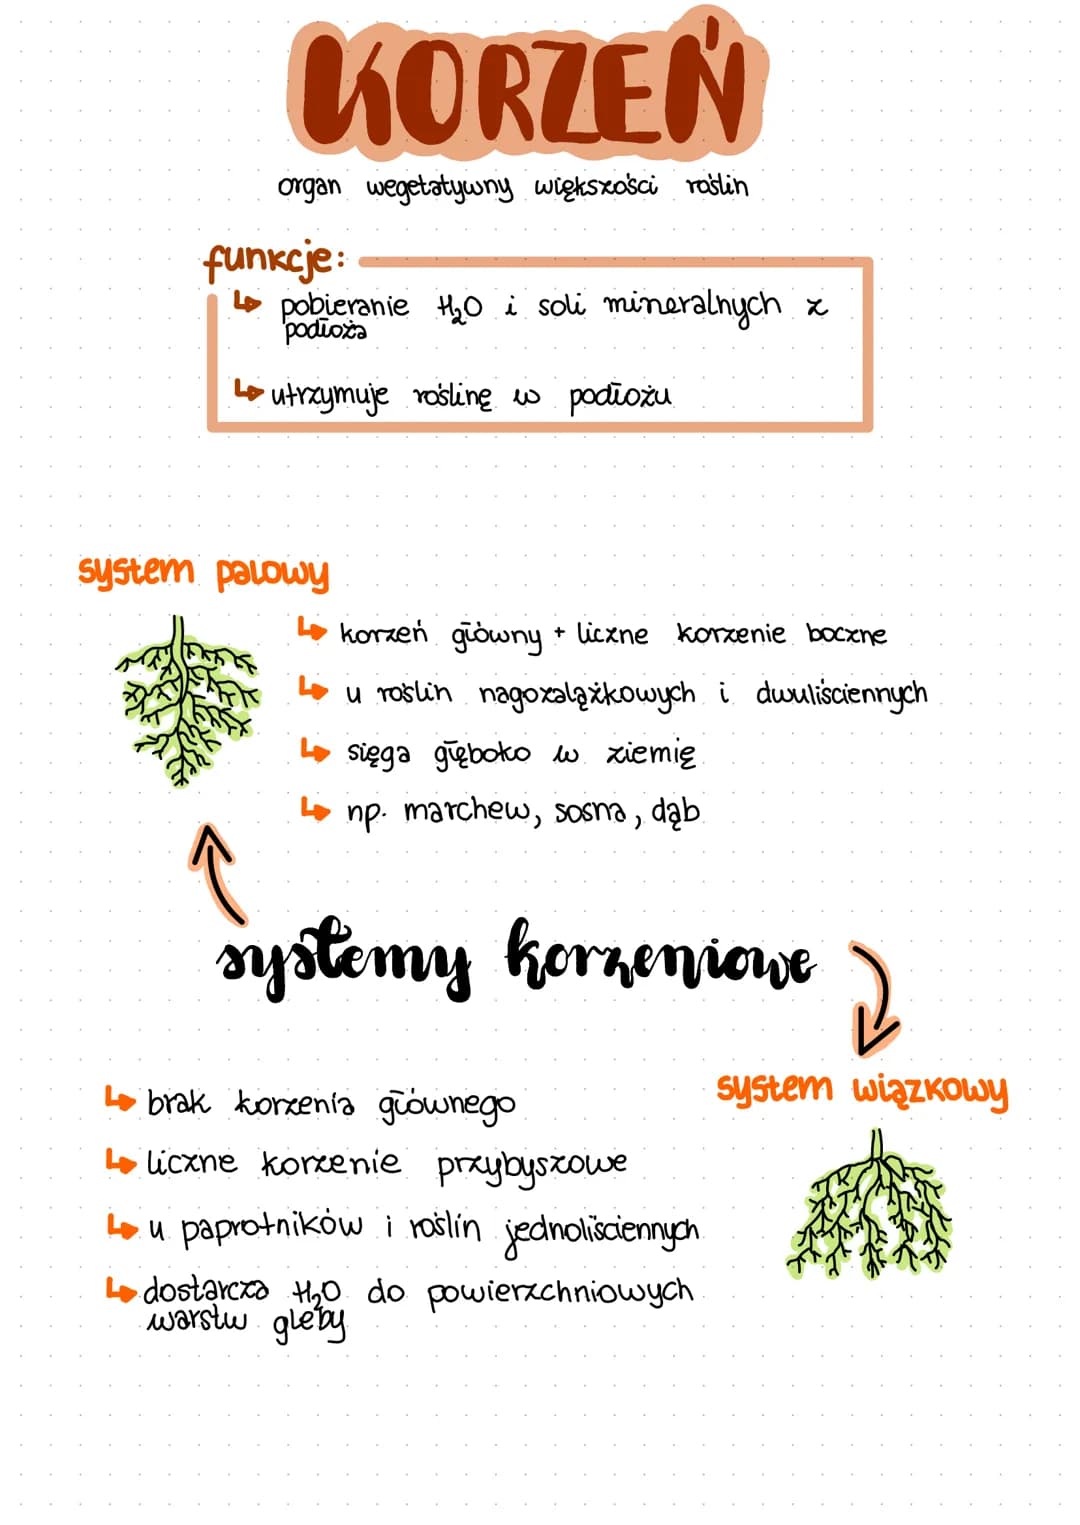 KORZEŃ
organ wegetatywny większości roślin
funkcje:
pobieranie H₂O i soli mineralnych z
podłoża
utrzymuje roślinę w podłożu
system palowy
korzeń główny + liczne korzenie boczne
u roślin nagozalążkowych i dwuliściennych
sięga głęboko w ziemię
np. marchew, sosna, dąb
systemy korzeniowe
system wiązkowy
brak korzenia głównego
liczne korzenie przybyszowe
u paprotników i roślin jednoliściennych
dostarcza H₂O do powierzchniowych
warstw gleby